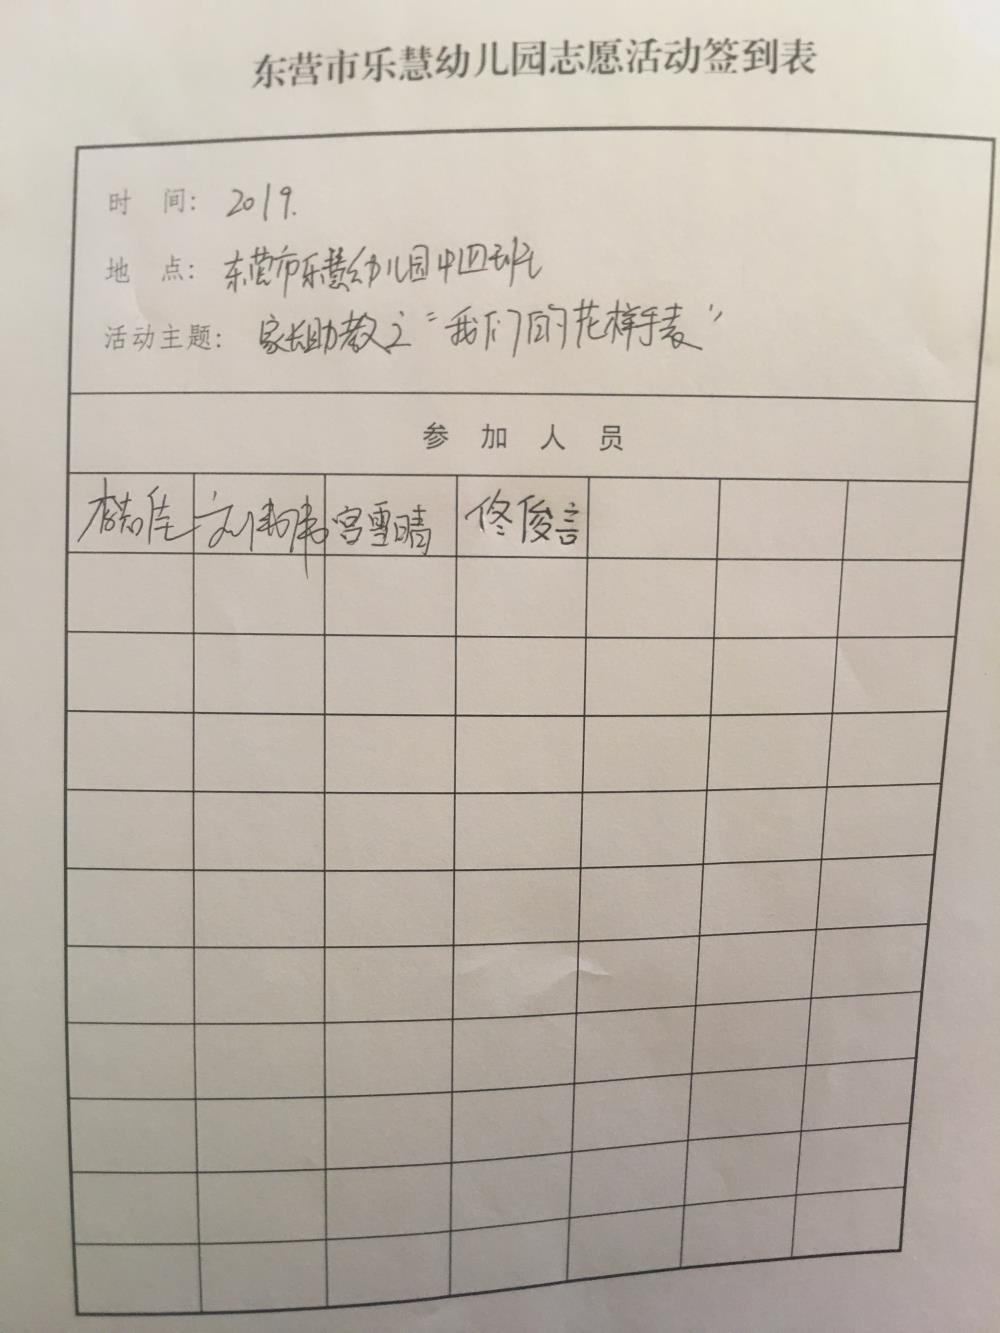 东营市乐慧幼儿园志愿活动签到表
时 间： 2019.
地 点： 东营市乐慧幼儿园中四班
活动主题： 家长助教之“我们的花样手表”
参 加 人 员
李志佳 刘伟伟 宫雪晴 佟俊言